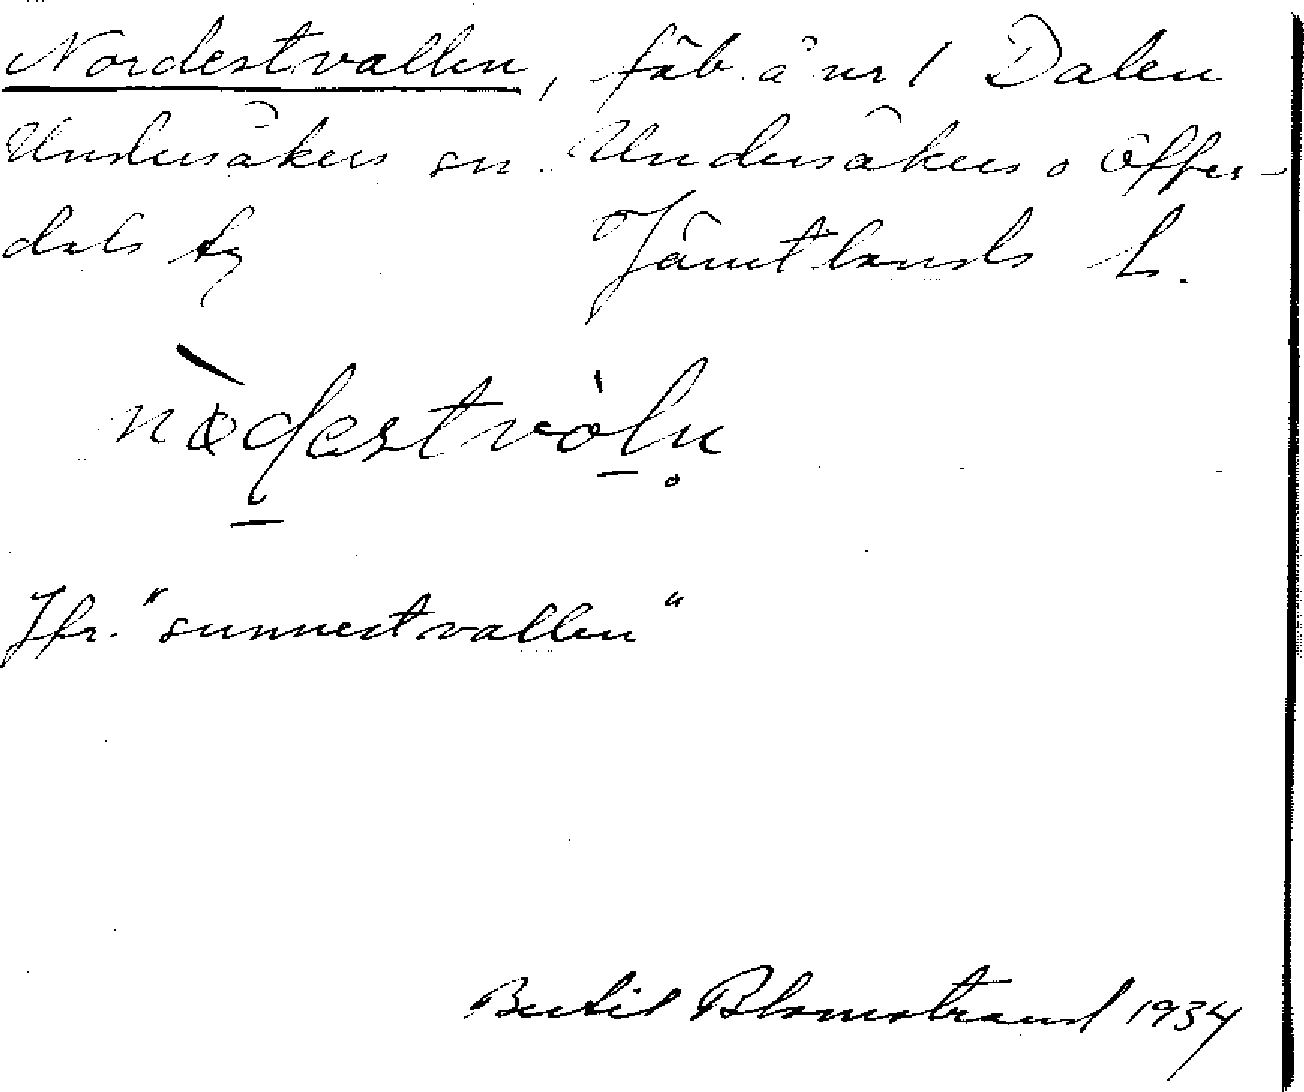 Nordestvallen, fäb. å nr 1 Dalen
Undersåkers sn. Undersåkers o Offer-
dals tg Jämtlands L.
Jfr. "sunnestvallen"
Bertil Blomstrand 1934